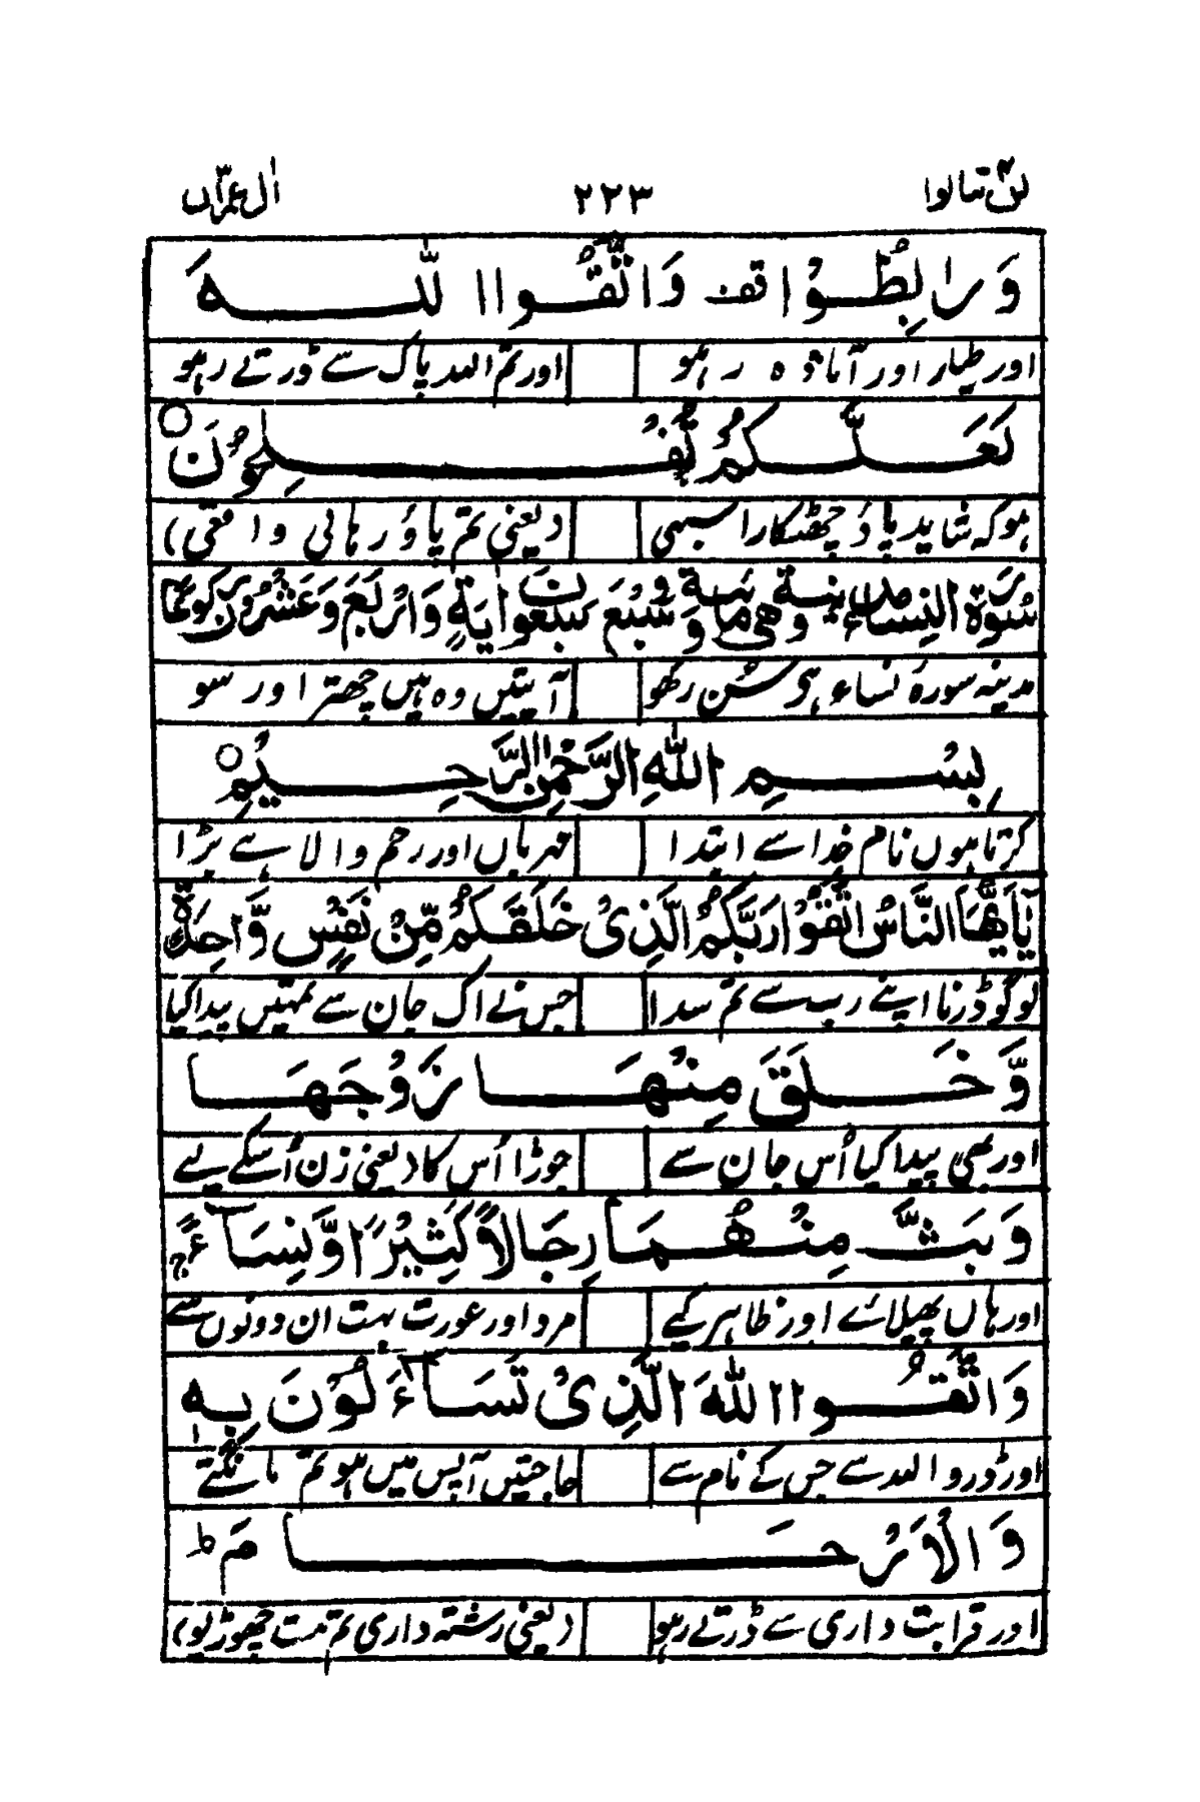 لن تنالوا ۲۲۳ اٰل عمرٰن
وَرَابِطُوْا قف وَاتَّقُوا اللّٰهَ
اور طیار اور آمادہ رہو اور تم اللہ پاک سے ڈرتے رہو
لَعَلَّكُمْ تُفْلِحُوْنَ ○
ہو کہ شاید پاؤ چھٹکارا سبھی (یعنی تم پاؤ رہائی واقعی)
سُوْرَةُ النِّسَاءِ مدنية وهى مائة وَّسَبْعَ سَبْعُوْنَ اٰيَةٍ وَاَرْبَعَ وَعَشْرُوْنَ ركوعا
مدینہ سورہ نساء ہی سن رکھو آیتیں وہ ہیں چھتر اور سو
بِسْمِ اللّٰهِ الرَّحْمٰنِ الرَّحِيْمِ ○
کرتا ہوں نام خدا سے ابتدا مہرباں اور رحم والا ہے بڑا
يٰٓاَيُّهَا النَّاسُ اتَّقُوْا رَبَّكُمُ الَّذِىْ خَلَقَكُمْ مِّنْ نَفْسٍ وَّاحِدَةٍ
لوگو ڈرنا اپنے رب سے تم سدا جس نے اک جان سے تمہیں پیدا کیا
وَّخَلَقَ مِنْهَا زَوْجَهَا
اور بھی پیدا کیا اُس جان سے جوڑا اُس کا (یعنی زن اُسکے لیے
وَبَثَّ مِنْهُمَا رِجَالًا كَثِيْرًا وَّنِسَآءً ج
اور ہاں پھیلائے اور ظاہر کیے مرد اور عورت بہت ان دونوں سے
وَاتَّقُوا اللّٰهَ الَّذِىْ تَسَآءَلُوْنَ بِهٖ
اور ڈرو اللہ سے جس کے نام سے حاجتیں آپس میں ہو تم مانگتے
وَالْاَرْحَامَ ط
اور قرابت داری سے ڈرتے رہو (یعنی رشتہ داری تم مت چھوڑیو)